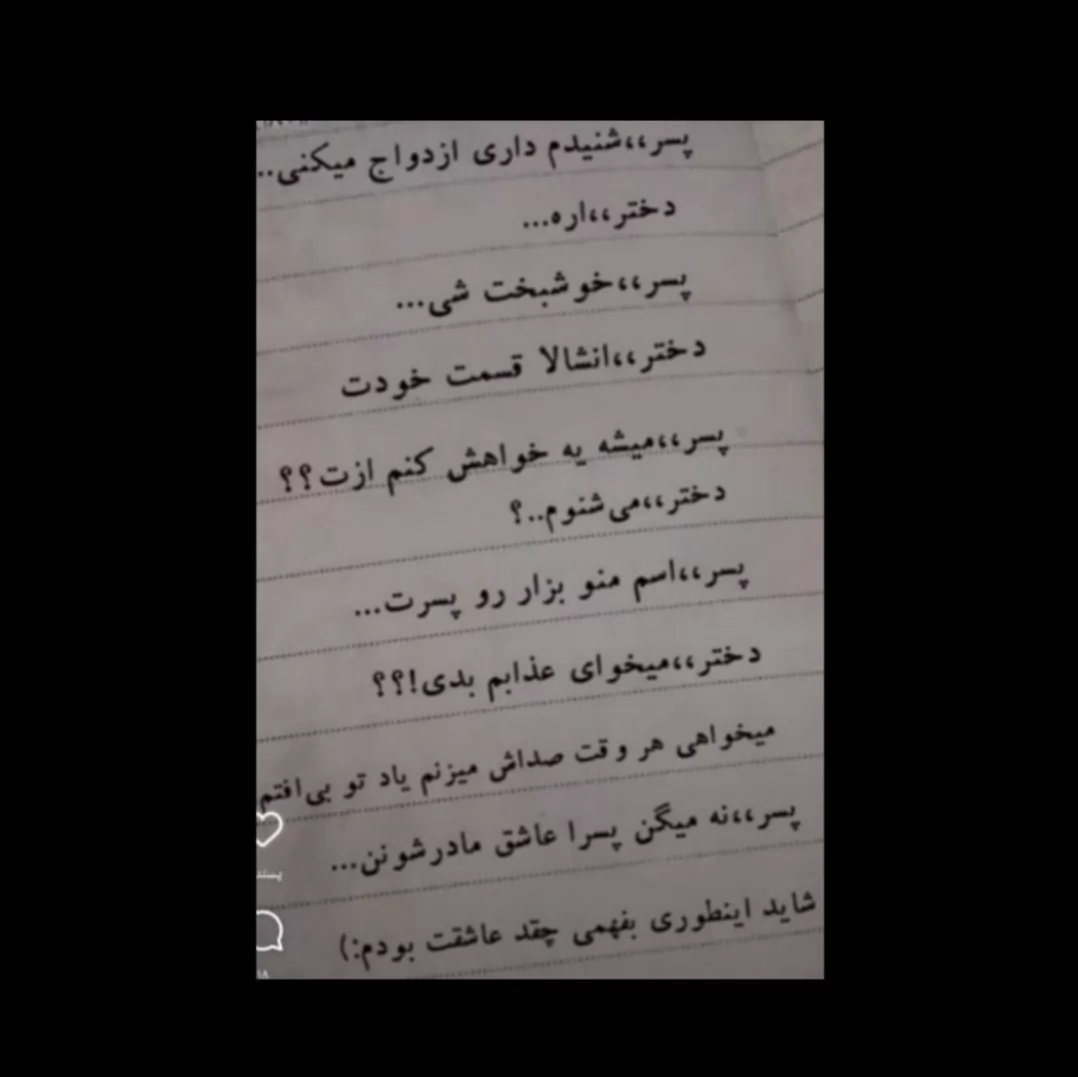 پسر،،شنیدم داری ازدواج میکنی..
دختر،،اره...
پسر،،خوشبخت شی...
دختر،،انشالا قسمت خودت
پسر،،میشه یه خواهش کنم ازت؟؟
دختر،،می‌شنوم..؟
پسر،،اسم منو بزار رو پسرت...
دختر،،میخوای عذابم بدی!؟؟
میخواهی هر وقت صداش میزنم یاد تو بی‌افتم
پسر،،نه میگن پسرا عاشق مادرشونن...
شاید اینطوری بفهمی چقد عاشقت بودم:)